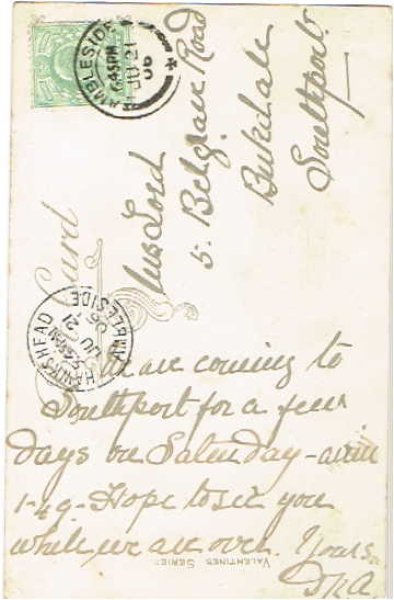 AMBLESIDE
6.45PM
JU 21
06
Mrs Lord
5. Belgrave Road
Birkdale
Southport
Card
HAWKSHEAD
AMBLESIDE
JU 21
06
We are coming to
Southport for a few
days on Saturday - arrive
1-49 - Hope to see you
while we are over. Yours
VALENTINES SERIES